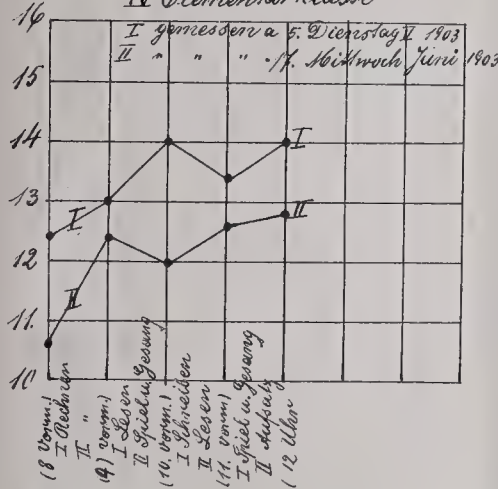 16
IV Elementarklasse
I gemessen a 5. Dienstag II 1903
II " " " 17. Mittwoch Juni 1903
15
14
I
13
I
II
12
II
11.
10
(8 vorm.)
I Rechnen
II "
(9) vorm.)
I Lesen
II Spiel u. Gesang
(10. vorm.)
I Schreiben
II Lesen
(11. vorm)
I Spiel u. Gesang
II Aufsatz
( 12 Uhr